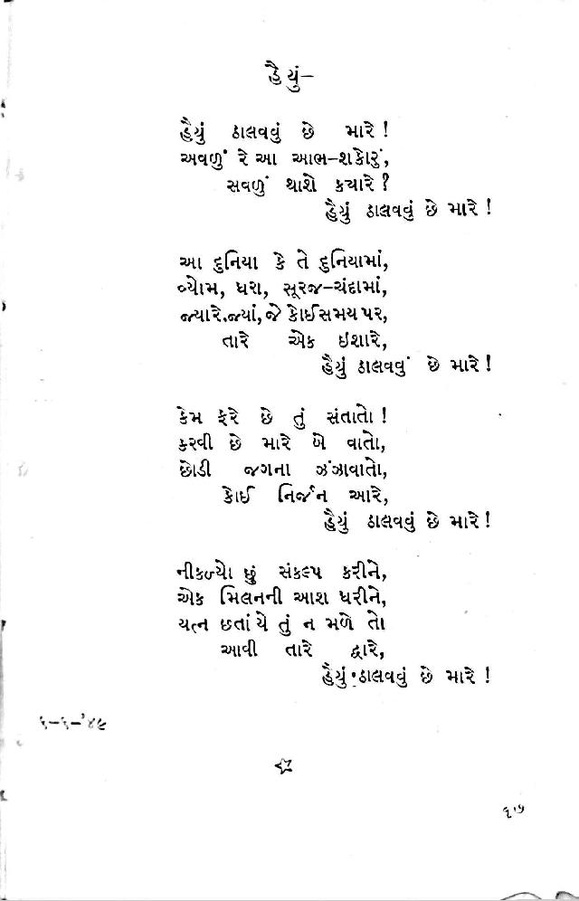 હૈયું–
હૈયું ઠાલવવું છે મારે !
અવળું રે આ આભ-શકોરું,
સવળું થાશે ક્યારે ?
હૈયું ઠાલવવું છે મારે !
આ દુનિયા કે તે દુનિયામાં,
વ્યોમ, ધરા, સૂરજ-ચંદામાં,
જ્યારે.જ્યાં, જે કોઈ સમય પર,
તારે એક ઇશારે,
હૈયું ઠાલવવું છે મારે !
કેમ ફરે છે તું સંતાતો !
કરવી છે મારે બે વાતો,
છોડી જગના ઝંઝાવાતો,
કોઈ નિર્જન આરે,
હૈયું ઠાલવવું છે મારે !
નીકળ્યો છું સંકલ્પ કરીને,
એક મિલનની આશ ધરીને,
યત્ન છતાં યે તું ન મળે તો
આવી તારે દ્વારે,
હૈયું ઠાલવવું છે મારે !
૬–૬–'૪૯
૬૭